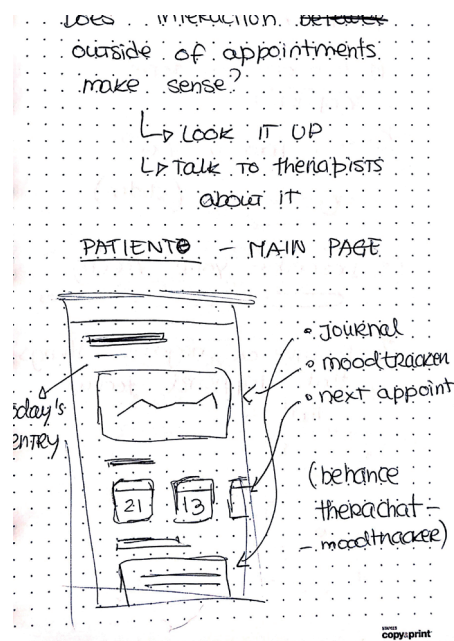 Does interaction between
outside of appointments
make sense?
LOOK IT UP
Talk to therapists
about it
PATIENT - MAIN PAGE
• Journal
• moodtracker
• next appoint
oday's
ENTRY
21
13
(behance
therachat -
- moodtracker)
STAPLES
copy&print